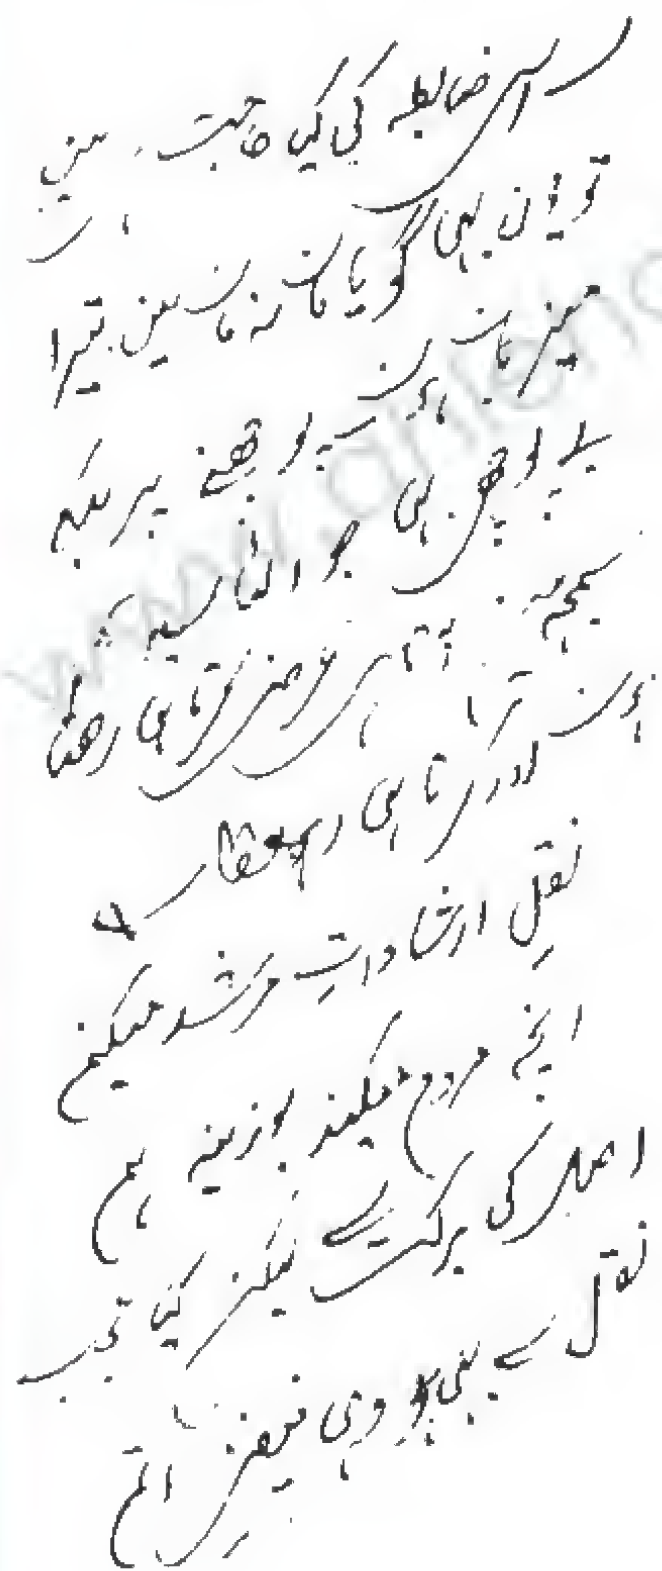 اس ضابطہ کی کیا حاجت، میں
تو یوں ہی گویا مان نہ مان میں تیرا
میزبان ہوں نہ پوچھنے پر بلکہ
بے پوچھے ہی جو الٹا سیدھا
سمجھ میں آتا ہے عرض کرتا ہی رہتا
ہوں اور کرتا ہی رہوں گا
نقل ارشادات مرشد میکنم
آنچہ مردم میکند بوزینہ ہم
اصل کی برکت سے لیکن کیا عجب
نقل سے بھی ہو وہی فیض اتم
www.